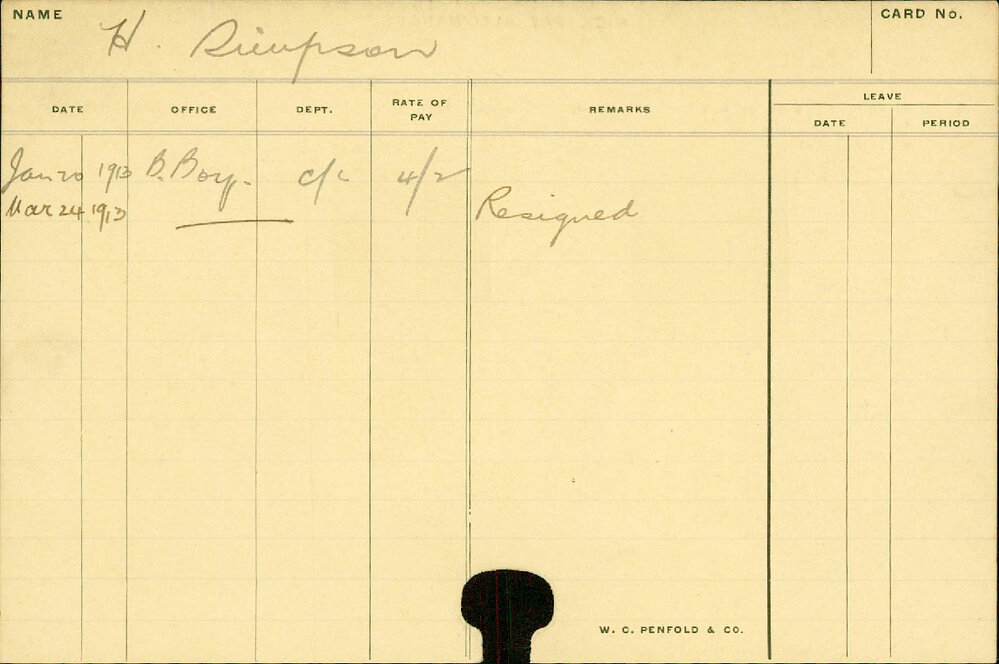 NAME H. Simpson CARD No.
DATE OFFICE DEPT. RATE OF PAY REMARKS LEAVE
DATE PERIOD
Jan 20 1913 B. Boy. C/c 4/2
Mar 24 1913 Resigned
W. C. PENFOLD & CO.